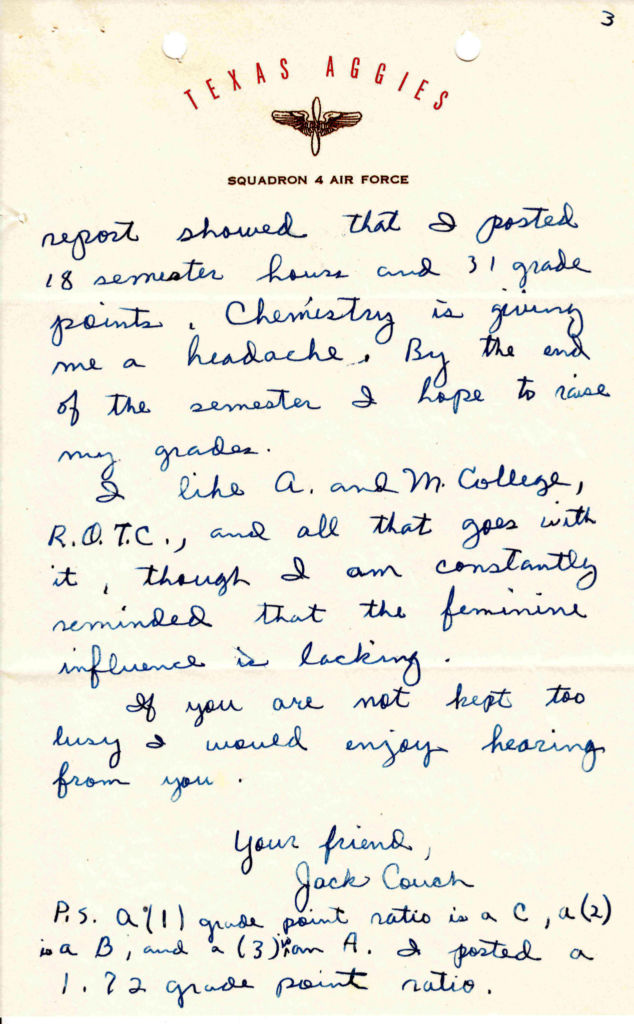 3
TEXAS AGGIES
SQUADRON 4 AIR FORCE
report showed that I posted
18 semester hours and 31 grade
points. Chemistry is giving
me a headache. By the end
of the semester I hope to raise
my grades.
I like A. and M. College,
R.O.T.C., and all that goes with
it, though I am constantly
reminded that the feminine
influence is lacking.
If you are not kept too
busy I would enjoy hearing
from you.
Your friend,
Jack Couch
P.S. A (1) grade point ratio is a C, a (2)
is a B, and a (3) is an A. I posted a
1.72 grade point ratio.